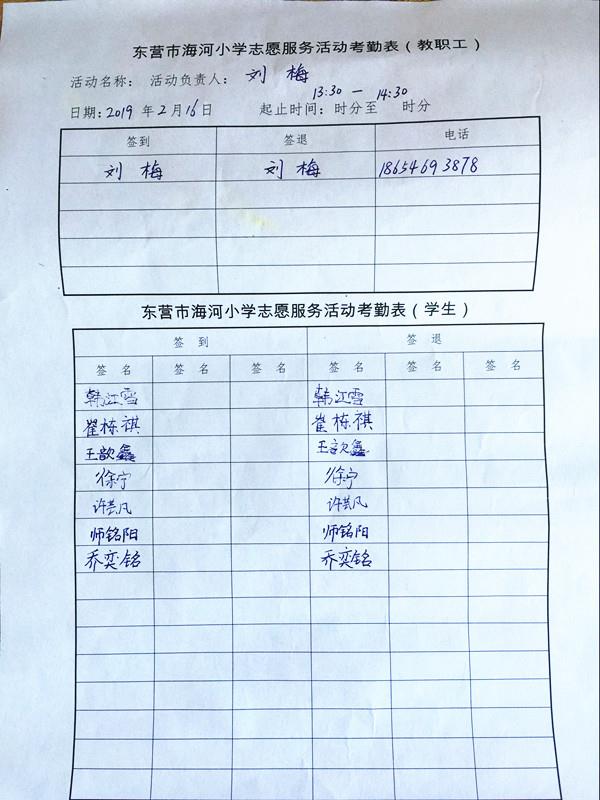 东营市海河小学志愿服务活动考勤表（教职工）
活动名称： 活动负责人： 刘 梅
13:30 — 14:30
日期：2019 年 2 月 16 日 起止时间： 时分至 时分
签到 签退 电话
刘 梅 刘 梅 18654693878
东营市海河小学志愿服务活动考勤表（学生）
签 到 签 退
签 名 签 名 签 名 签 名 签 名 签 名
韩江雪 韩江雪
崔栋祺 崔栋祺
王歆鑫 王歆鑫
徐宁 徐宁
许芸凡 许芸凡
师铭阳 师铭阳
乔奕铭 乔奕铭